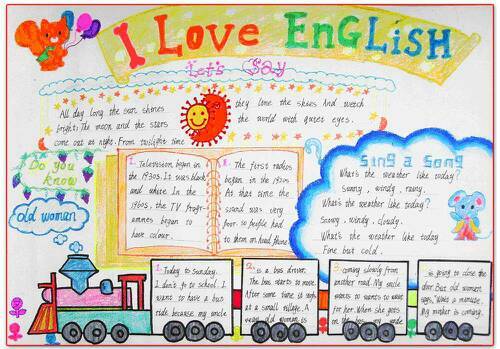 I LOVE ENGLISH
Let's Say
All day long the sun shines
bright. The moon and the stars
come out at night. From twilight time
they line the skies And watch
the world with quiet eyes.
Do you
know
old woman
1. Television began in
the 1930s. It was black
and white. In the
1960s, the TV progr-
ammes began to
have colour.
The first radios
began in the 1920s
At that time the
sound was very
poor. so people had
to them on head phone
Sing a Song
What's the weather like today?
Sunny, windy, rainy.
What's the weather like today?
Snowy, windy, cloudy.
What's the weather like today
Fine but cold.
1. Today to Sunday.
I don't go to school. I
wants to have a bus
ride because my uncle
2. is a bus driver.
The bus starts to move.
After some time it stops
at a small village. A
very old woman is
coming slowly from
another road. My uncle
wants to wants to wait
for her. When she gets
on the bus, my uncle
is going to close the
door. But old woman
says, Wait a minute.
My mother is coming.